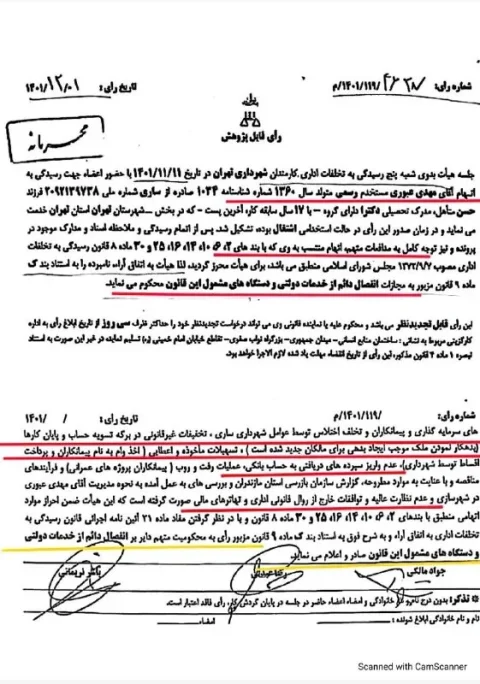 شماره رأی: ۱۴۰۱/۱۱۹/م
تاریخ رأی: ۱۴۰۱/۱۲/۰۱
محرمانه
رأی قابل پژوهش
جلسه هیأت بدوی شعبه پنج رسیدگی به تخلفات اداری کارمندان شهرداری تهران در تاریخ ۱۴۰۱/۱۱/۱۱ با حضور اعضاء جهت رسیدگی به
اتهام آقای مهدی عبوری مستخدم رسمی متولد سال ۱۳۶۰ شماره شناسنامه ۱۰۳۴ صادره از ساری شماره ملی ۲۰۹۲۱۳۹۷۳۸ فرزند
حسن متأهل، مدرک تحصیلی دکترا دارای گروه – با ۱۷ سال سابقه کار، آخرین پست – که در بخش – شهرستان تهران استان تهران خدمت
می نماید و در زمان صدور این رأی در حالت استخدامی اشتغال بوده، تشکیل شد. پس از اتمام رسیدگی و ملاحظه اسناد و مدارک موجود در
پرونده و نیز توجه کامل به مدافعات متهم اتهام منتسب به وی که با بند های ۲، ۶، ۱۰، ۱۴، ۱۶، ۲۵ و ۳۰ ماده ۸ قانون رسیدگی به تخلفات
اداری مصوب ۱۳۷۲/۹/۷ مجلس شورای اسلامی منطبق می باشد، برای هیأت محرز گردید، لذا هیأت به اتفاق آراء نامبرده را به استناد بند ک
ماده ۹ قانون مزبور به مجازات انفصال دائم از خدمات دولتی و دستگاه های مشمول این قانون محکوم می نماید.
این رأی قابل تجدیدنظر می باشد و محکوم علیه یا نماینده قانونی وی می تواند درخواست تجدیدنظر خود را حداکثر ظرف سی روز از تاریخ ابلاغ رأی به اداره
کارگزینی مربوط به نشانی : ساختمان منابع انسانی- میدان جمهوری- بزرگراه نواب صفوی- تقاطع خیابان امام خمینی (ره) تسلیم نماید، در غیر این صورت به استناد
تبصره ۱ ماده ۴ قانون مذکور، این رأی از تاریخ انقضاء مهلت یاد شده لازم الاجرا خواهد بود.
شماره رأی: ۱۴۰۱/۱۱۹/م
تاریخ رأی: / /۱۴۰۱
های سرمایه گذاری و پیمانکاران و تخلف اختلاس توسط عوامل شهرداری ساری، تخفیفات غیرقانونی در برگه تسویه حساب و پایان کارها
(بدهکار نمودن ملک موجب ایجاد بدهی برای مالکان جدید شده است) ، تسهیلات مأخوذه و اعطایی ( اخذ وام به نام پیمانکاران و پرداخت
اقساط توسط شهرداری)، عدم واریز سپرده های دریافتی به حساب بانکی، عملیات رفت و روب ( پیمانکاران پروژه های عمرانی) و فرآیندهای
مناقصه و با عنایت به موارد مطروحه، گزارش سازمان بازرسی استان مازندران و بررسی های به عمل آمده به نحوه مدیریت آقای مهدی عبوری
در شهرسازی و عدم نظارت عالیه و توافقات خارج از روال قانونی اداری و تهاترهای مالی صورت گرفته است که این هیأت ضمن احراز موارد
اتهامی منطبق با بندهای ۲، ۶، ۱۰، ۱۴، ۱۶، ۲۵ و ۳۰ ماده ۸ قانون و با در نظر گرفتن مفاد ماده ۲۱ آئین نامه اجرائی قانون رسیدگی به
تخلفات اداری به اتفاق آراء و به شرح فوق به استناد بند ک ماده ۹ قانون مزبور رأی به محکومیت متهم دایر بر انفصال دائم از خدمات دولتی
و دستگاه های مشمول این قانون صادر و اعلام می نماید.
جواد مالکی
رضا عبدلی
یاشار نریمانی
* تذکر: بدون درج نام و نام خانوادگی و امضاء اعضاء حاضر در جلسه در پایان گردش کار، رأی فاقد اعتبار است.
نام و نام خانوادگی ابلاغ شونده : امضاء
Scanned with CamScanner